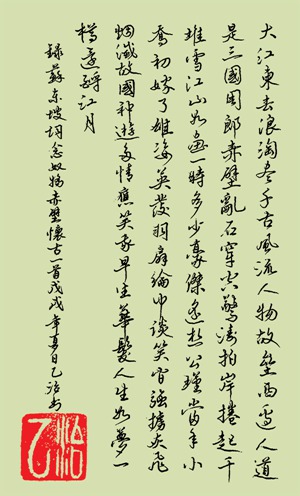 大江東去浪淘盡千古風流人物故壘西邊人道
是三國周郎赤壁亂石穿空驚濤拍岸捲起千
堆雪江山如畫一時多少豪傑遙想公瑾當年小
喬初嫁了雄姿英發羽扇綸巾談笑間強擄灰飛
烟滅故國神遊多情應笑我早生華髮人生如夢一
樽還酹江月
錄蘇東坡詞念奴嬌赤壁懷古一首戊戌年夏日乙書
乙